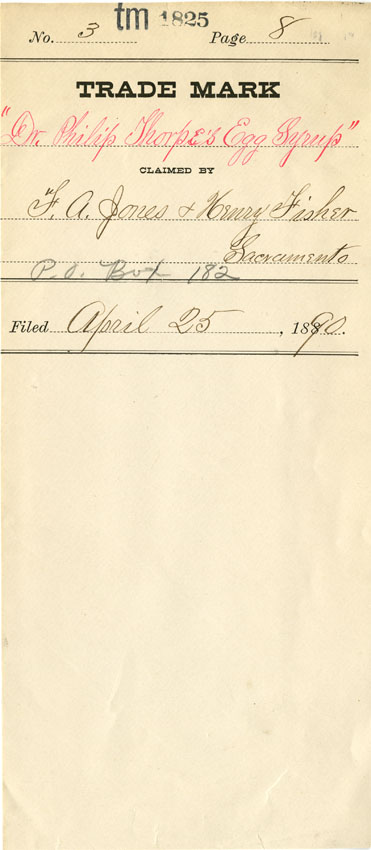 tm 1825
No. 3 Page 8
TRADE MARK
"Dr. Philip Thorpe's Egg Syrup"
CLAIMED BY
F. A. Jones & Henry Fisher
Sacramento
P.O. Box 182
Filed April 25, 1890.